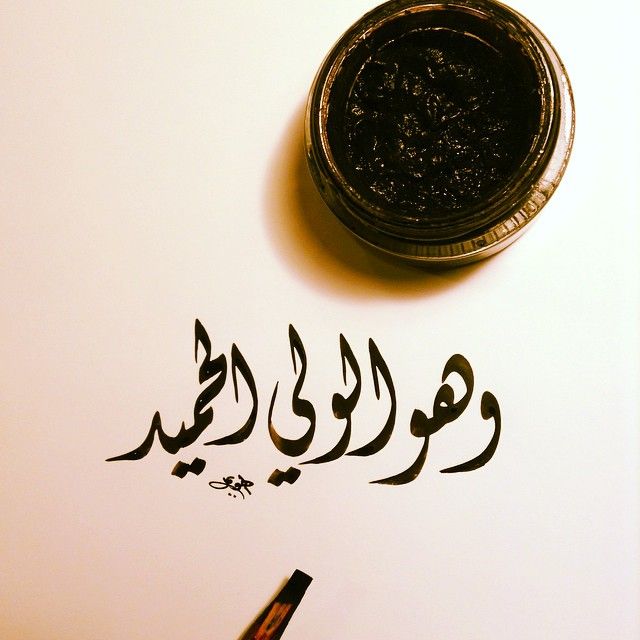 وهو الولي الحميد